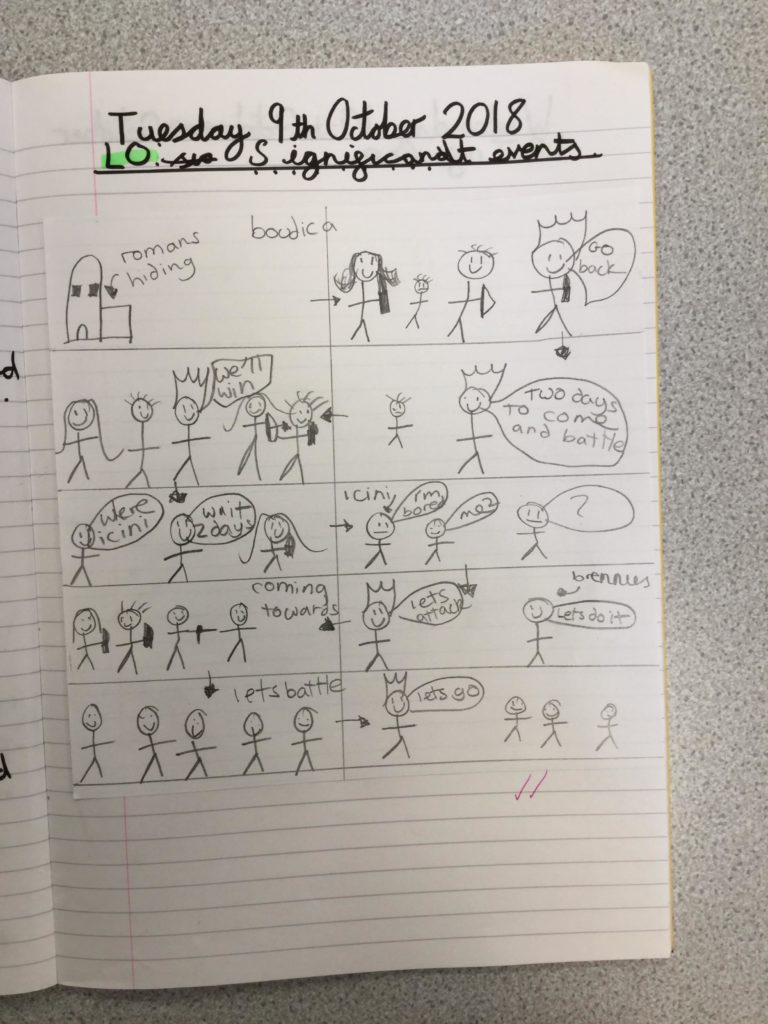 Tuesday 9th October 2018
LO. Significandt events.
romans
hiding
boudica
GO
back
we'll
win
TWO days
to come
and battle
were
icini
wait
2 days
icini
i'm
bored
me2
?
coming
towards
lets
attack
brennies
Lets do it
lets battle
lets go